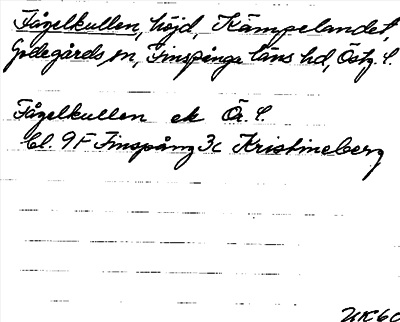 Fågelkullen, höjd, Kämpelandet,
Godegårds sn, Finspånga läns hd, Östg. l.
Fågelkullen ek Ör. l.
bl. 9F Finspång 3c Kristineberg
UK60